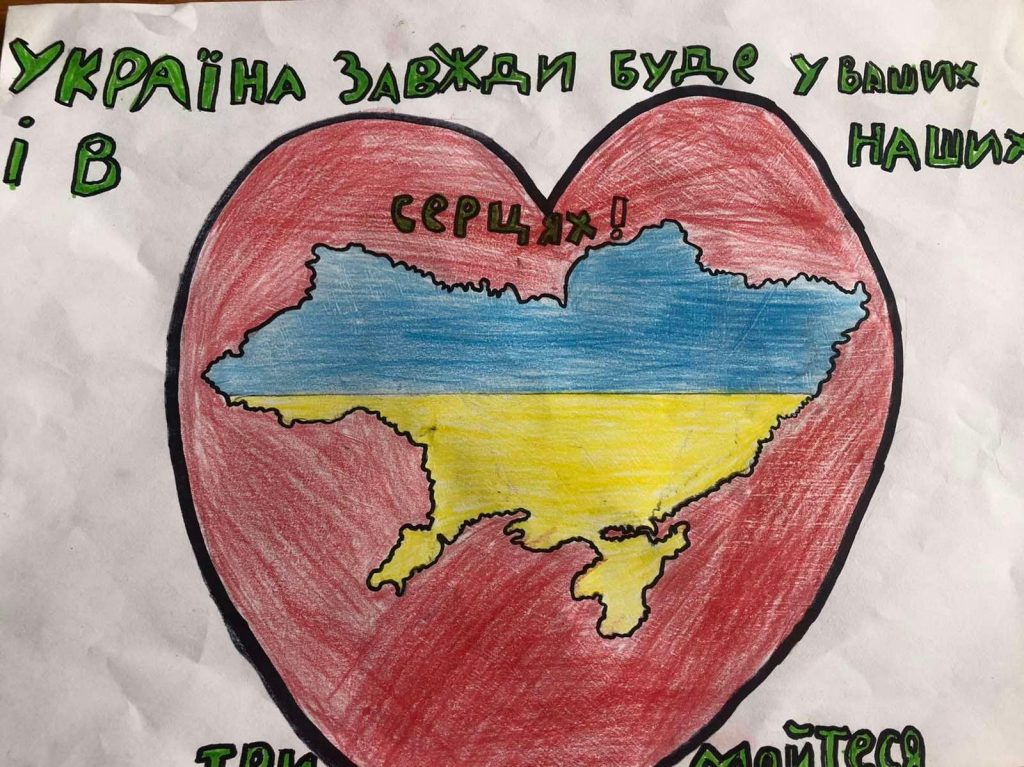 УКРАЇНА ЗАВЖДИ БУДЕ У ВАШИХ
І В НАШИХ
СЕРЦЯХ!
ТРИ МАЙТЕСЯ